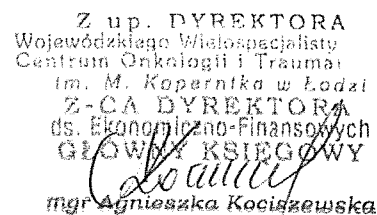 Z up. DYREKTORA
Wojewódzkiego Wielospecjalisty
Centrum Onkologii i Traumat
im. M. Kopernika w Łodzi
Z-CA DYREKTORA
ds. Ekonomiczno-Finansowych
GŁÓWNY KSIĘGOWY
mgr Agnieszka Kociszewska